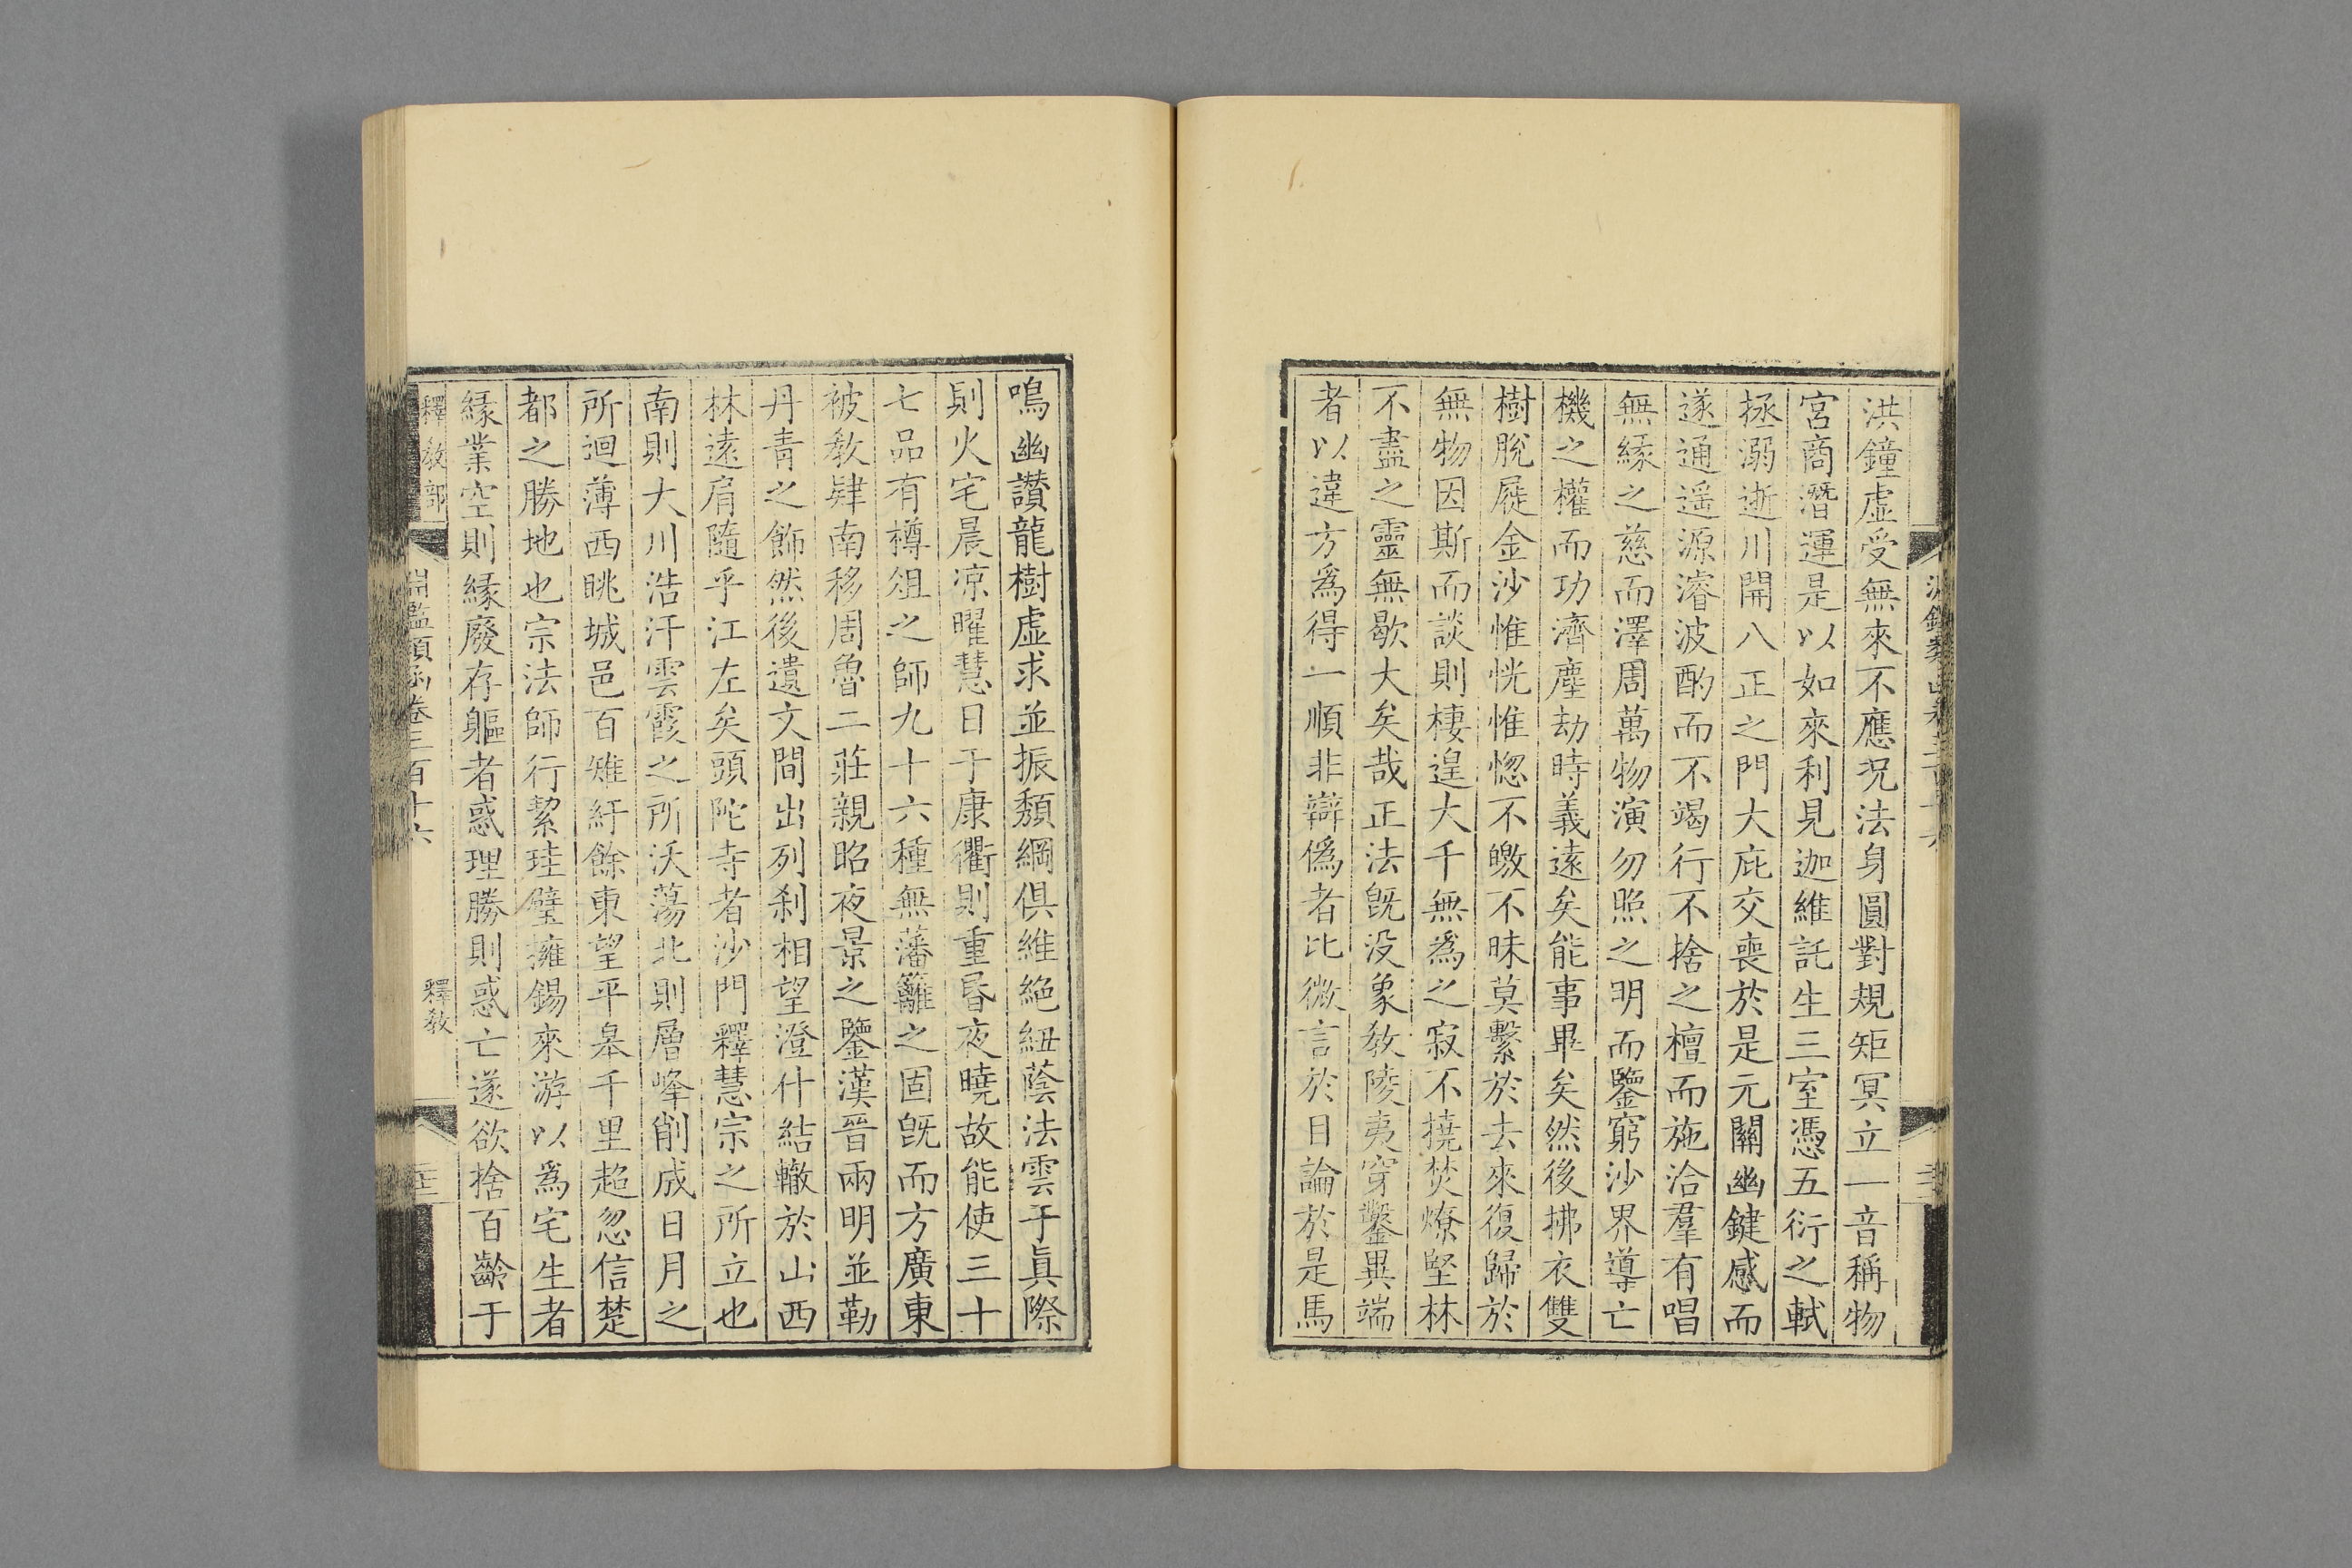 洪鐘虛受無來不應况法身圓對規矩冥立一音稱物
宮商潛運是以如來利見迦維託生三室憑五衍之軾
拯溺逝川開八正之門大庇交喪於是元關幽鍵感而
遂通遥源濬波酌而不竭行不捨之檀而施洽羣有唱
無緣之慈而澤周萬物演勿照之明而鑒窮沙界導亡
機之權而功濟塵劫時義遠矣能事畢矣然後拂衣雙
樹脫屣金沙惟恍惟惚不皦不昧莫繫於去來復歸於
無物因斯而談則棲遑大千無爲之寂不撓焚燎堅林
不盡之靈無歇大矣哉正法旣没象教陵夷穿鑿異端
者以違方爲得一順非辯僞者比微言於目論於是馬
鳴幽讚龍樹虛求並振頹綱俱維絕紐蔭法雲于眞際
則火宅晨凉曜慧日于康衢則重昏夜曉故能使三十
七品有樽俎之師九十六種無藩籬之固旣而方廣東
被教肄南移周魯二莊親昭夜景之鑒漢晉兩明並勒
丹青之飾然後遺文間出列刹相望澄什結轍於山西
林遠肩隨乎江左矣頭陀寺者沙門釋慧宗之所立也
南則大川浩汗雲霞之所沃蕩北則層峰削成日月之
所迴薄西眺城邑百雉紆餘東望平皋千里超忽信楚
都之勝地也宗法師行絜珪璧擁錫來游以爲宅生者
緣業空則緣廢存軀者惑理勝則惑亡遂欲捨百齡于
釋教部
淵鑑類函卷三百十六
釋教